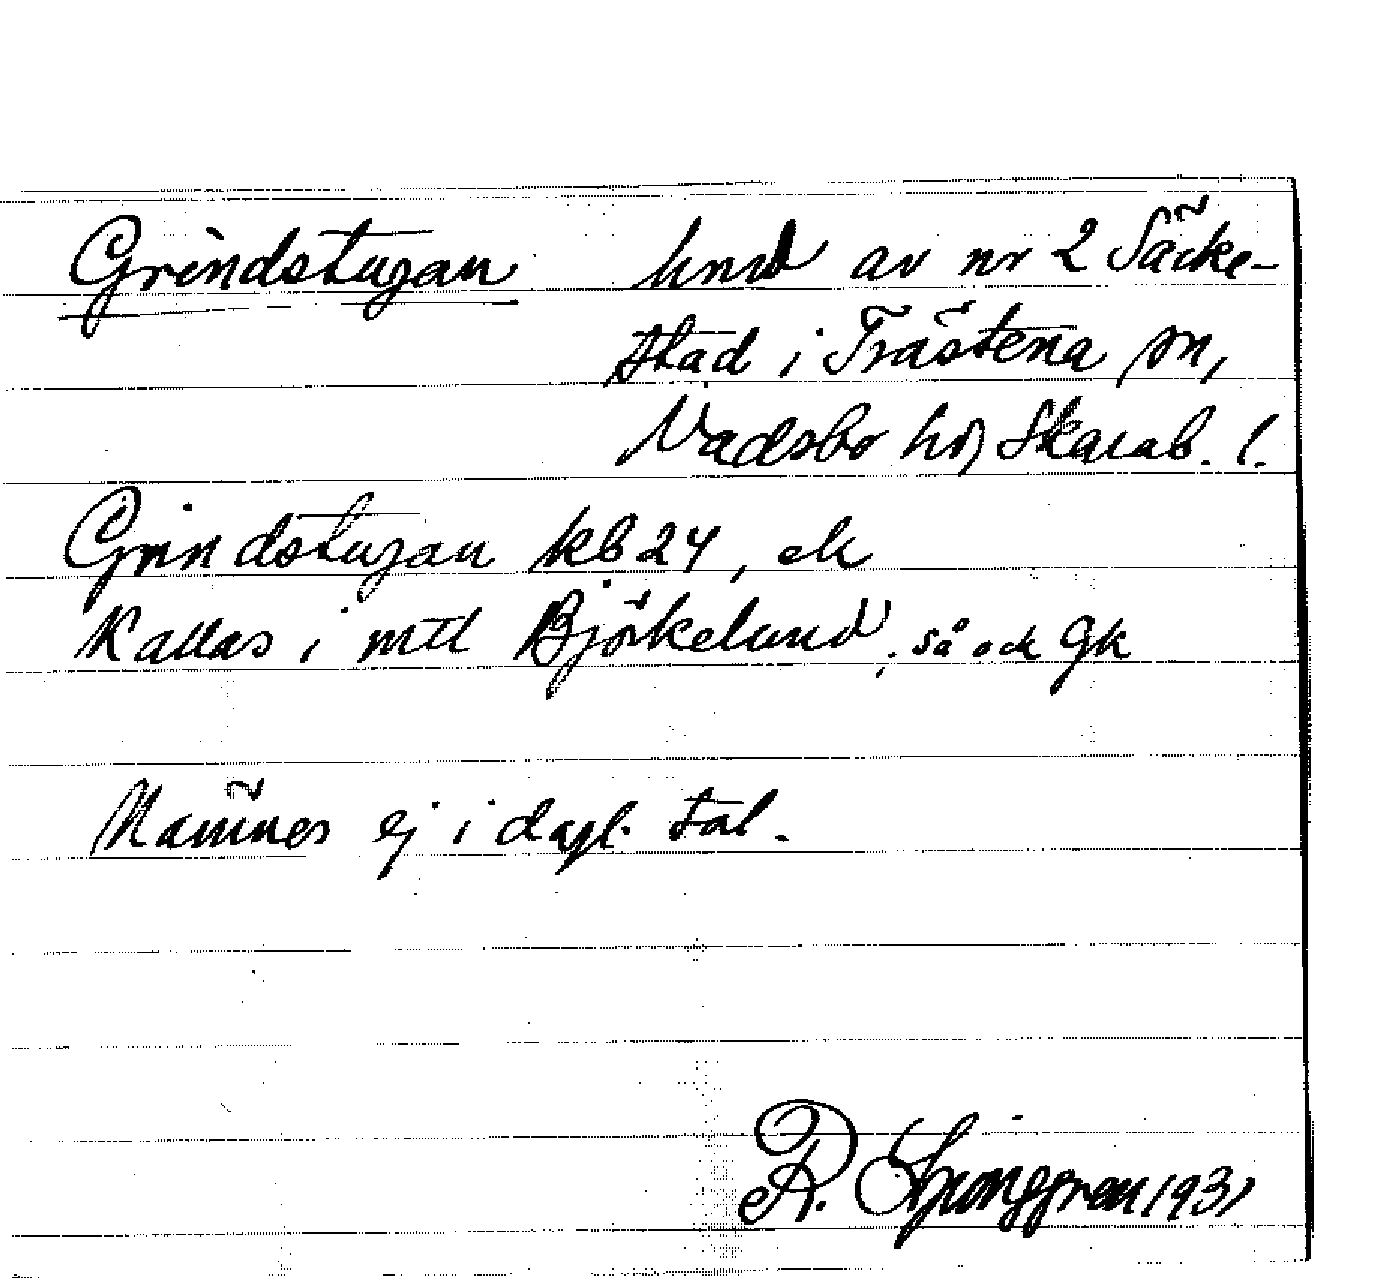 Grindstugan hmd av nr 2 Säcke-
stad i Trästena sn,
Vadsbo hd, Skarab. l.
Grindstugan kb 24, ek
Kallas i mtl Björkelund, så ock Gk
Namnes ej i dagl. tal.
R. Ljunggren 1931